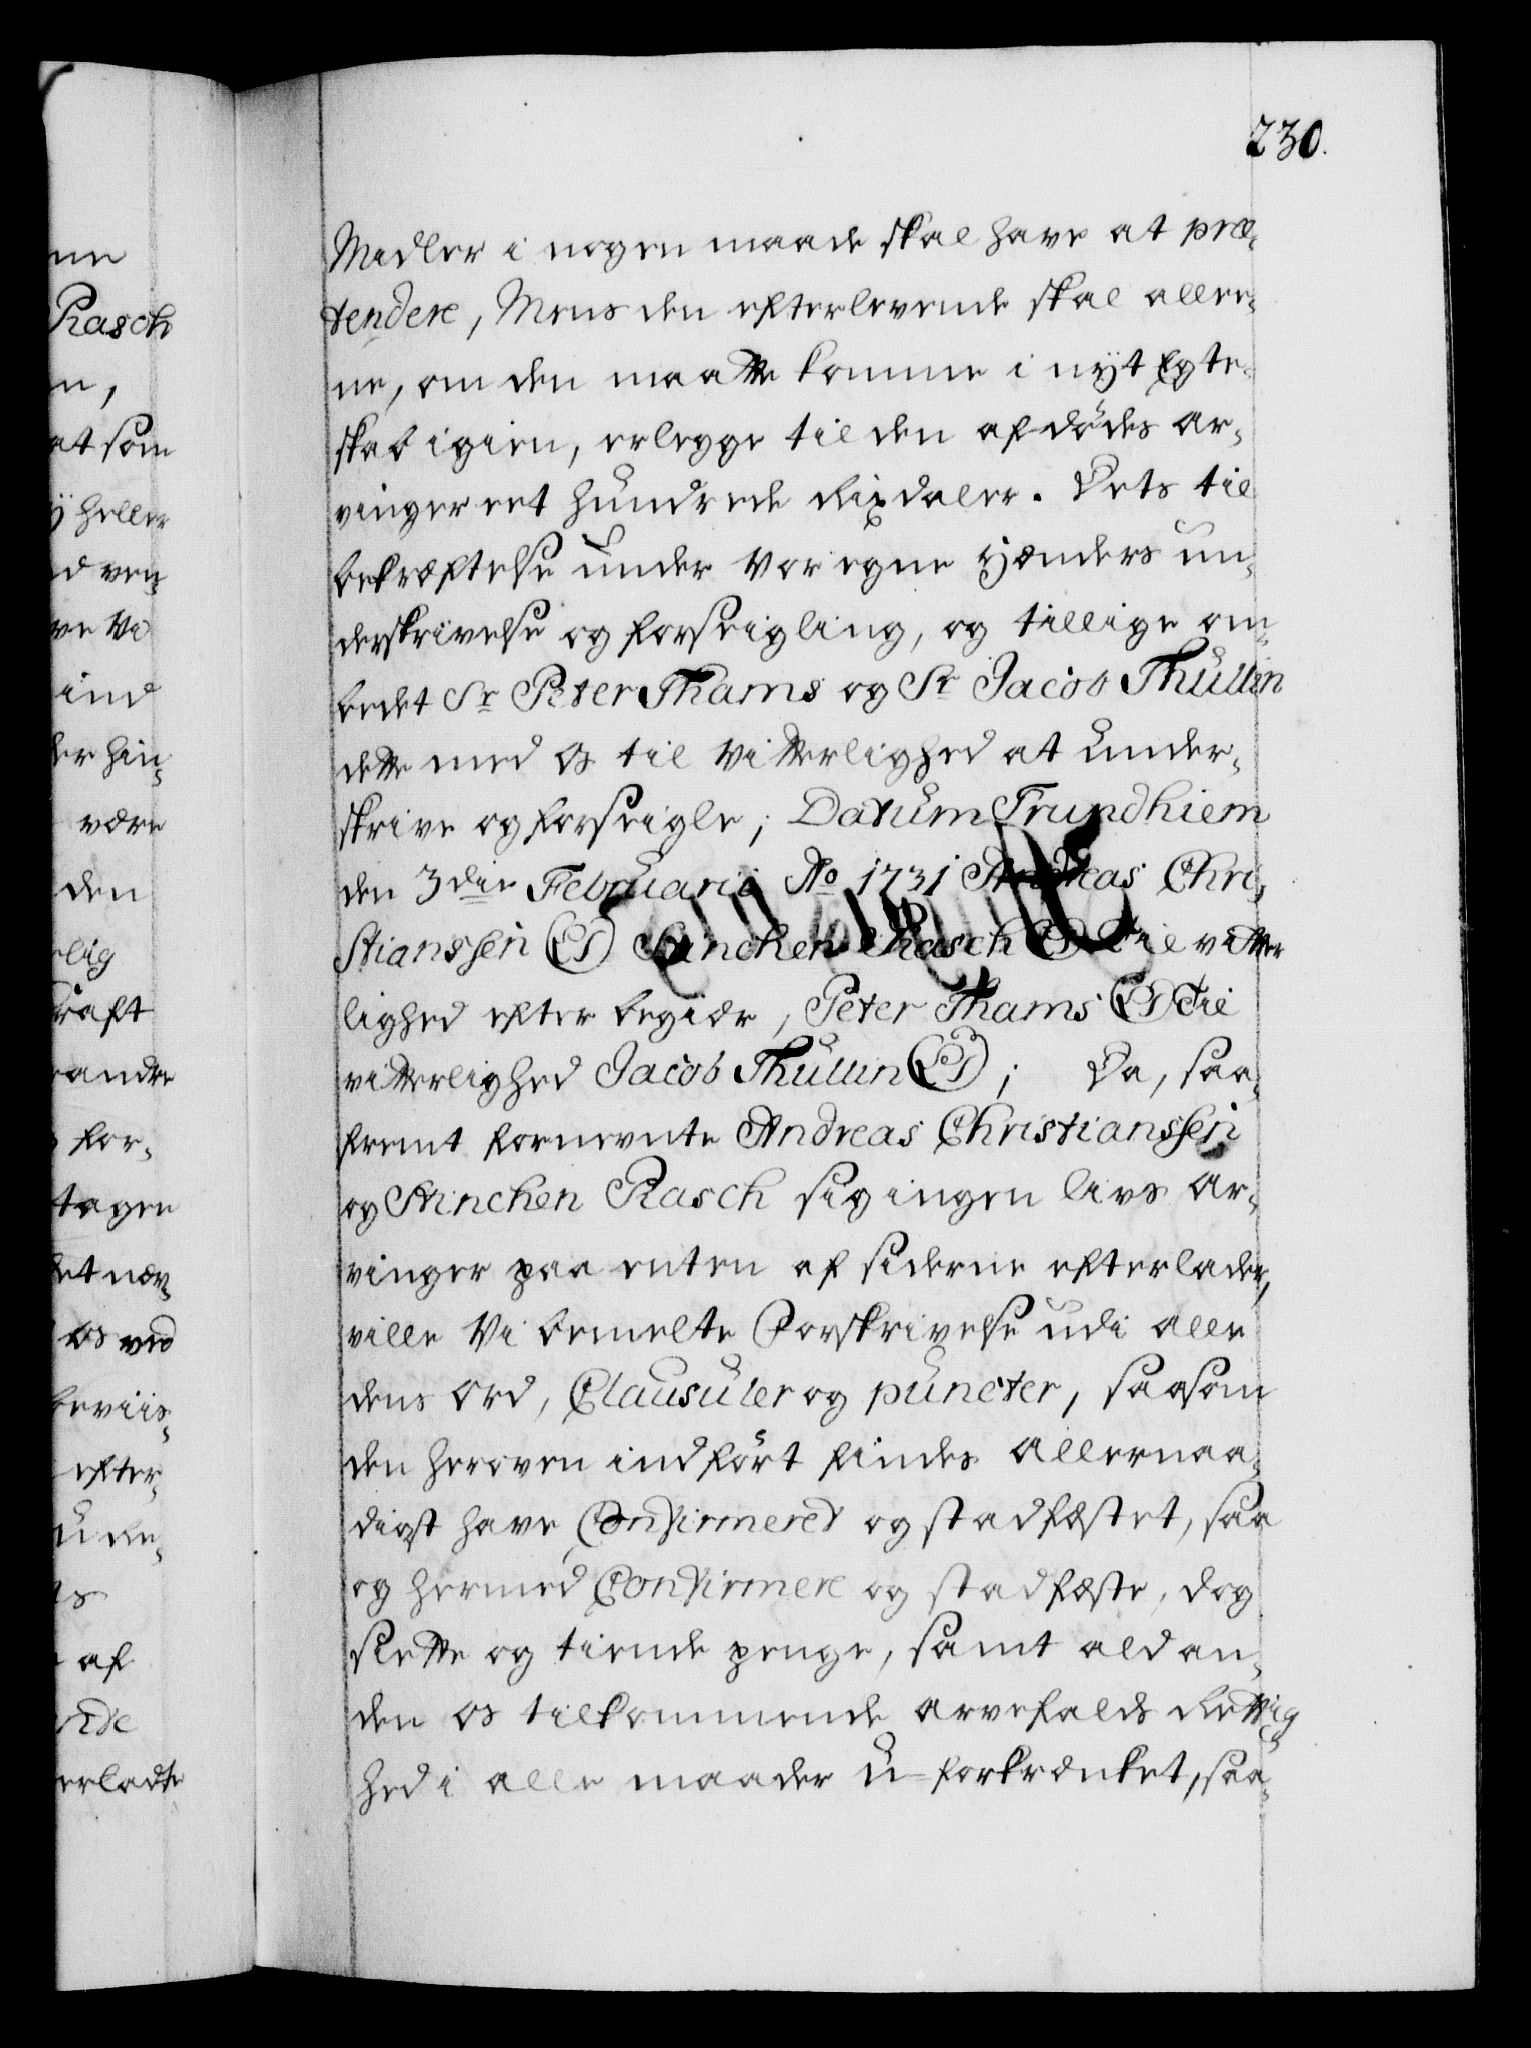 230.
Midler i nogen maade skal have at præ-
tendere, Mens den efterlevende skal alle-
ne, om den maatte komme i nÿt Egte-
skab igien, erlegge til den afdødes Ar-
vinger eet hundrede Rixdaler. Dets til
bekræftelse under Vor egne Hænders un-
derskrivelse og forseigling, og tillige om-
bedet Sr Peter Thams og Sr Jacob Thullin
dette med Os til Vitterlighed at under-
skrive og forseigle; Datum Trundhiem
den 3die Februarii Ao 1731 Andreas Chri-
stianssen (LS) Anchen Rasch (LS) Til vitter
lighed efter begiær, Peter Thams (LS) Til
vitterlighed Jacob Thullin (LS); Da, saa-
fremt fornevnte Andreas Christianssen
og Anchen Rasch sig ingen livs Ar-
vinger paa enten af siderne efterlader,
ville Vi bemelte Forskrivelse udi alle
dens Ord, Clausuler og puncter, saasom
den heroven indført findes Allernaa-
digst have Confirmeret og stadfæstet, saa
og hermed Confirmere og stadfæste, dog
siette og tiende penge, samt ald an-
den Os tilkommende Arvefalds Rettig
hed i alle maader u-forkrænket, saa-
ne
Rasch
n,
at som
ÿ heller
d ven-
ve Vi
ind
der hin-
være
den
rlig
kraft
randre
for-
tagen
et næv-
os ved
beviis-
efter-
af
erladte